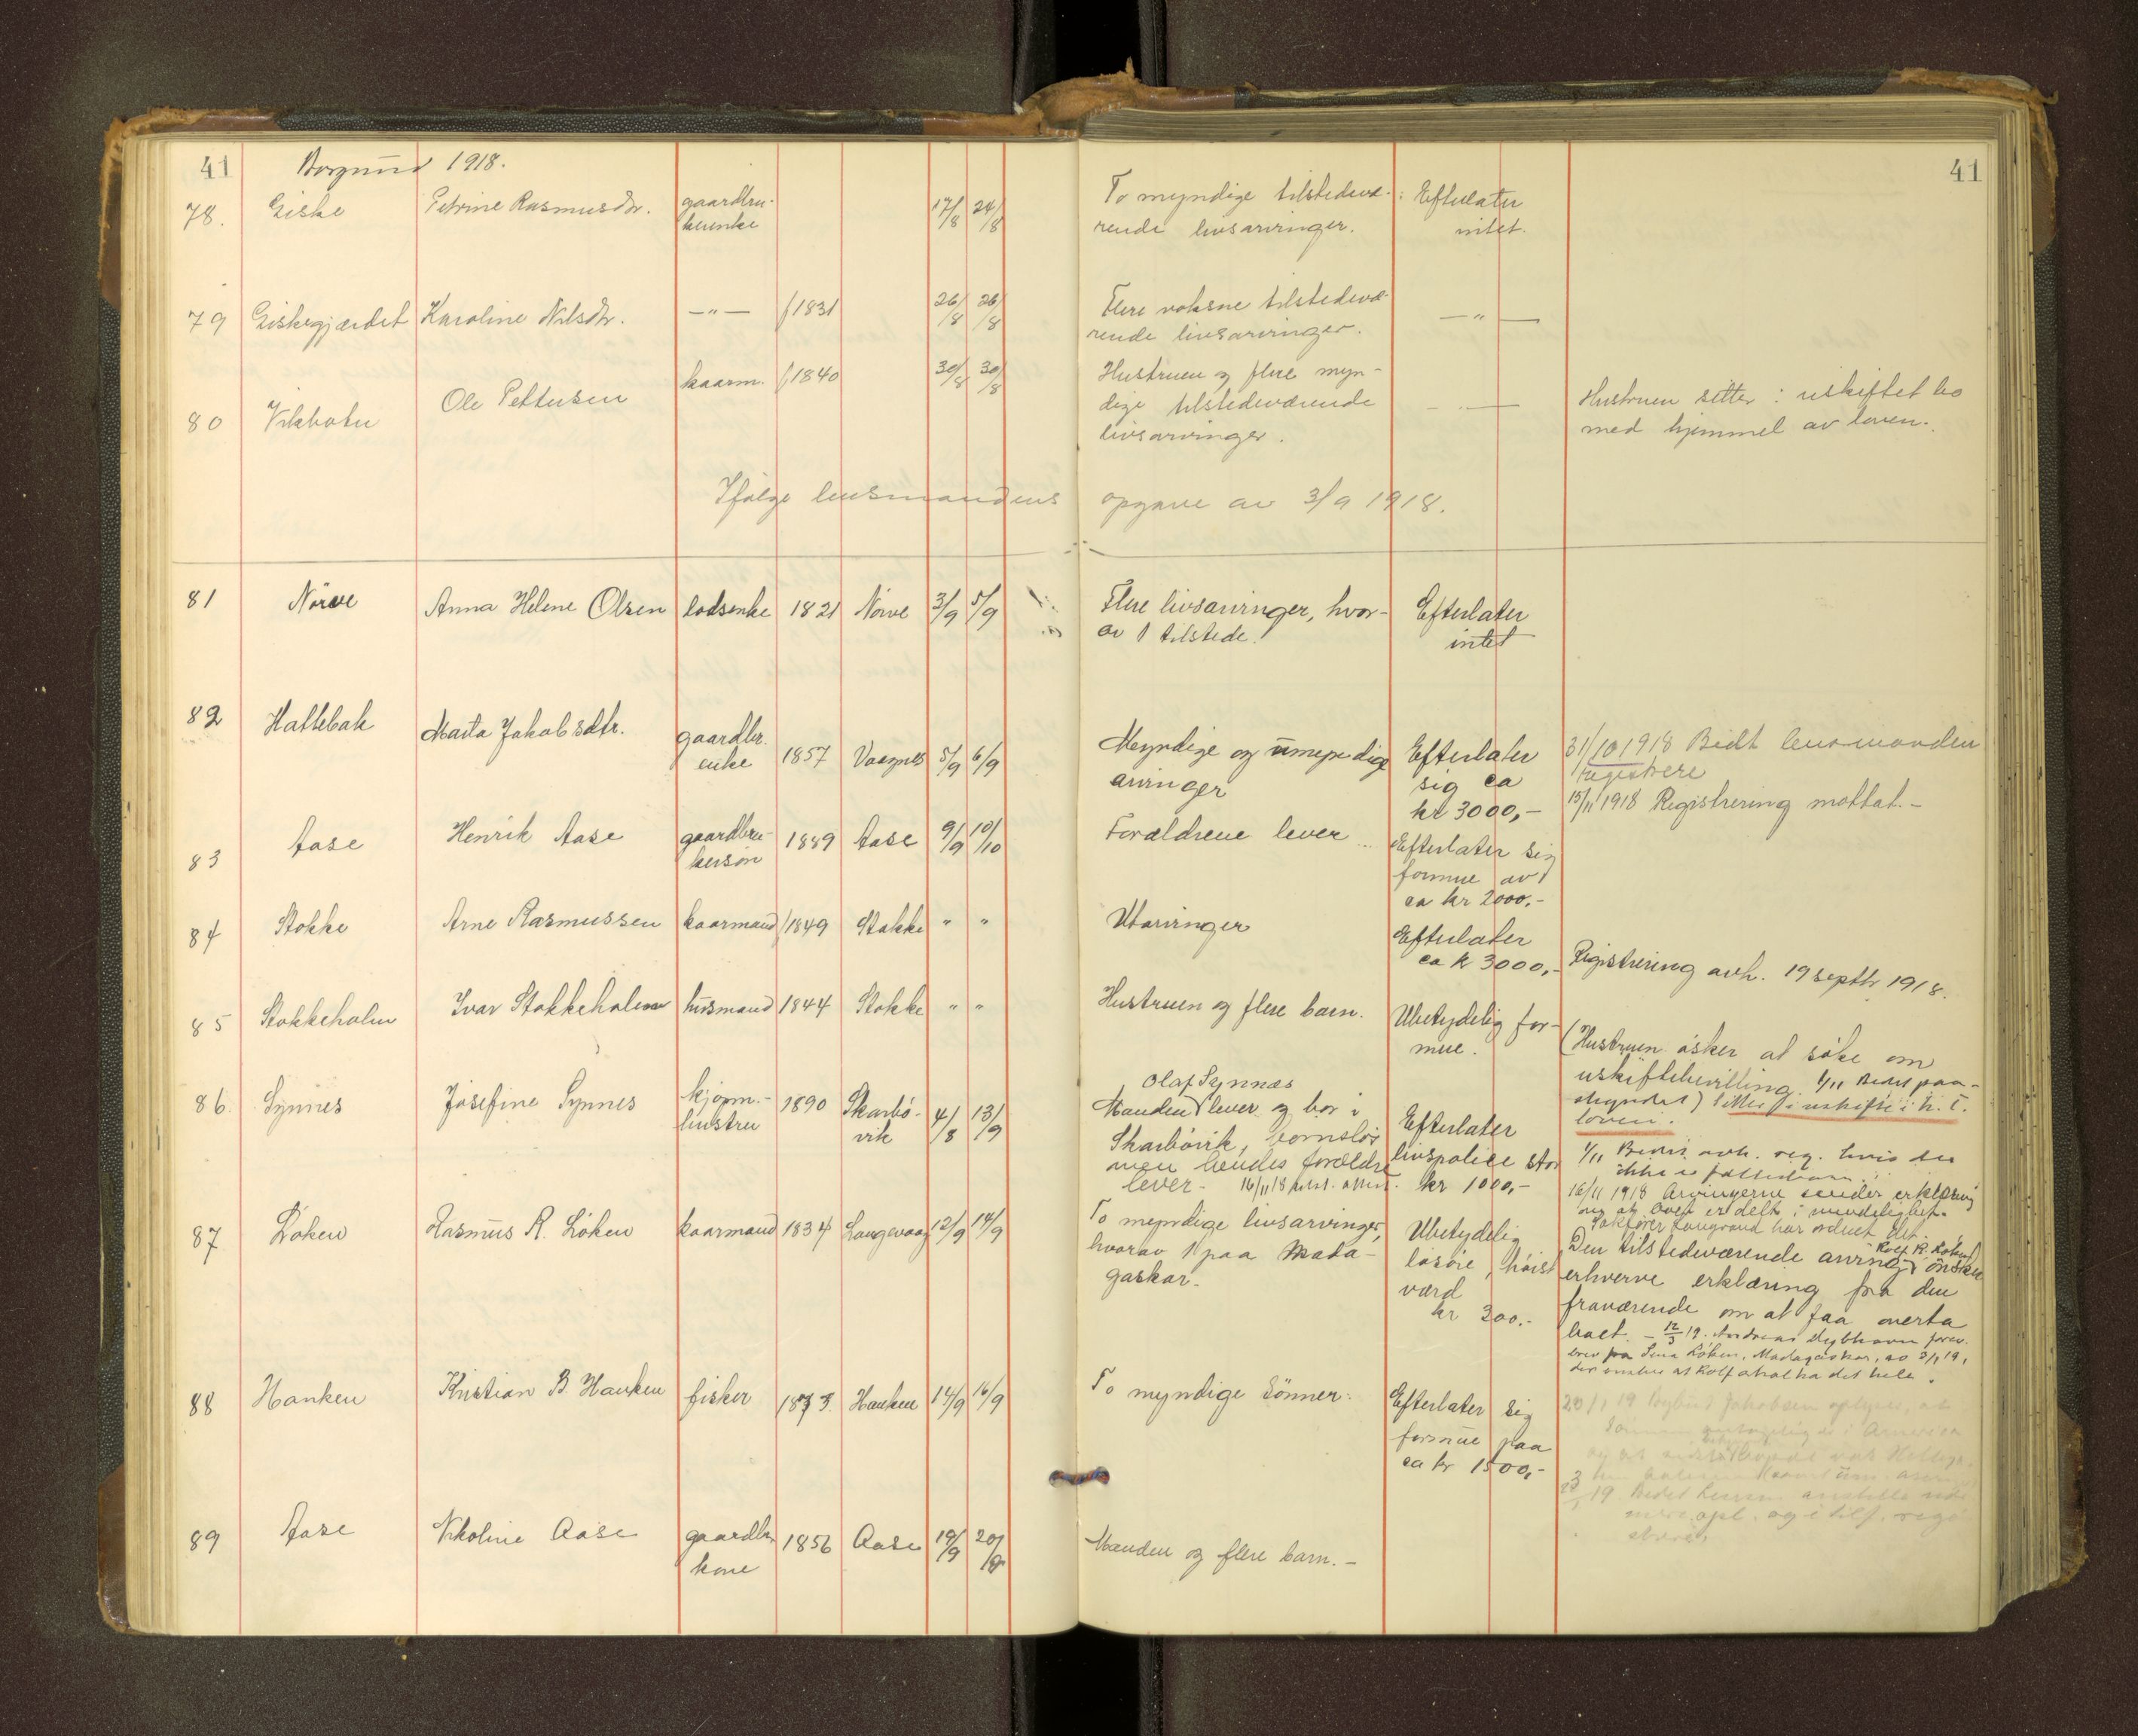 41 Borgund 1918. 41
78. Giske Petrine Rasmusdtr. gaardbru- 17/8 24/8 To myndige tilstedevæ- Efterlater
kerenke rende livsarvinger. intet.
79 Giskegjærdet Karoline Nilsdtr. —"— f 1831 26/8 26/8 Flere voksne tilstedevæ- —"—
rende livsarvinger.
80 Vikholen Ole Pettersen kaarm. f 1840 30/8 30/8 Hustruen og flere myn- —"— Hustruen sitter i uskiftet bo
dige tilstedeværende med hjemmel av loven.
livsarvinger.
Ifølge lensmandens opgave av 3/9 1918.
81 Nörve Anna Helene Olsen lodsenke 1821 Nörve 3/9 5/9 Flere livsarvinger, hvor- Efterlater
av 1 tilstede. intet
82 Hatlebak Marta Jakobsdtr. gaardbr. 1857 Vaagnes 5/9 6/9 Myndige og umyndige Efterlater 31/10 1918 Bedt lensmanden
enke arvinger sig ca registrere
kr 3000,- 15/11 1918 Registrering mottat.-
83 Aase Henrik Aase gaardbru- 1889 Aase 9/9 10/10 Forældrene lever Efterlater sig
kersön formue av
ca kr 2000.-
84 Stokke Arne Rasmussen kaarmand f 1849 Stokke " " Utarvinger Efterlater
ca k 3000,- Registrering avh. 19 septbr 1918.
85 Stokkeholm Ivar Stokkeholm husmand 1844 Stokke " " Hustruen og flere barn. Ubetydelig for-
mue. (Hustruen ösker at söke om
uskiftebevilling. 1/11 Bedt paa-
skyndet) Sitter i uskifte i h. t.
loven.
86. Synnes Josefine Synnes kjöpm.- 1890 Skarbö- 4/8 13/9 Olaf Synnes
hustru vik Manden lever og bor i Efterlater
Skarbövik, barnslös livspolice stor 1/11 avh. reg. hvis der
men hendes forældre kr 1000,- ikke er
lever- 16/11 18 16/11 1918 Arvingerne sender erklæring
om at boet er delt i mindelighet.
Sakfører har ordnet det.
87 Löken Rasmus R. Löken kaarmand 1834 Langevaag 12/9 14/9 To myndige livsarvinger, Ubetydelig Den tilstedeværende arving Rolf R. Löken önsker
hvorav 1 paa Mada- lösöre, höist erhverve erklæring fra den
gaskar. værd fraværende om at faa overta
kr 300.- boet. - 12/3 19. Andreas Dybhavn forev.
brev fra Lina Löken, Madagaskar, av 3/1 19,
der önsker at Rolf skal ha det hele.
88 Hanken Kristian B. Hanken fisker 1873 Hanken 14/9 16/9 To myndige sönner. Efterlater sig 20/1 19 Jakobsen oplyser at
formue paa
ca kr 1500,-
19. Bedt Lensm.
opl. og i tilf. regi-
strere.
89 Aase Nikoline Aase gaardbr. 1856 Aase 19/9 20/9 Manden og flere barn.-
kone